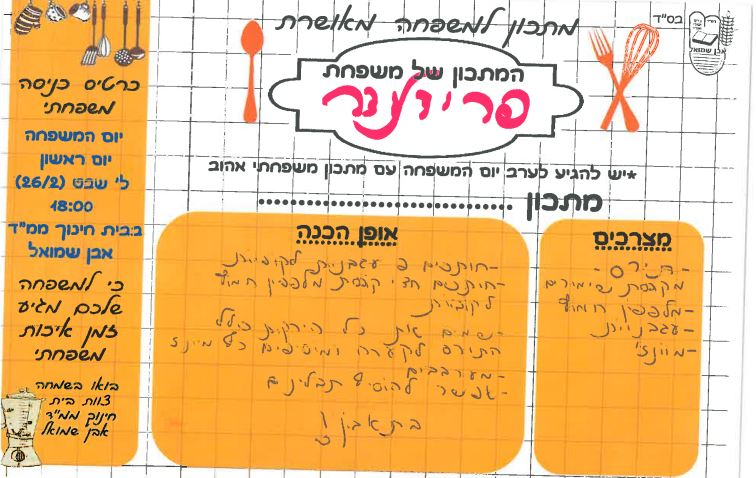 בס"ד
מתכון למשפחה מאושרת
המתכון של משפחת
פרידלנדר
*יש להגיע לערב יום המשפחה עם מתכון משפחתי אהוב
מתכון
מצרכים
-תירס-
מקופסת שימורים
-מלפפון חמוץ
-עגבניות
-מיונז
אופן הכנה
-חותכים עגבניות לקוביות
-חותכים חצי קופסת מלפפון חמוץ
לקוביות
-שמים את כל הירקות כולל
התירס לקערה ומוסיפים כף מיונז
-מערבבים
-אפשר להוסיף תבלינים
בתאבון!
כרטיס כניסה
משפחתי
יום המשפחה
יום ראשון
ל' שבט (26/2)
18:00
בבית חינוך ממ"ד
אבן שמואל
כי למשפחה
שלכם מגיע
זמן איכות
משפחתי
בואו בשמחה
צוות בית
חינוך ממ"ד
אבן שמואל
אבן שמואל